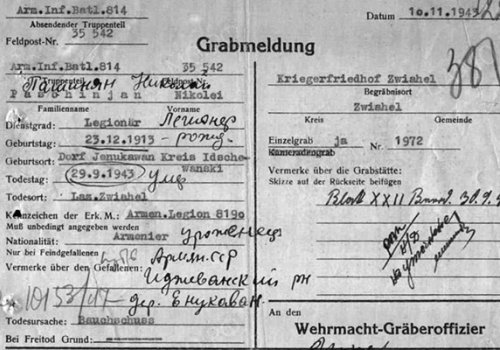 Arm.Inf.Batl.814
Absendender Truppenteil
Feldpost-Nr. 35 542
Datum 10.11.1943
Grabmeldung
Arm.Inf.Batl.814 35 542
Truppenteil Feldpost-Nr.
Пашинян Николай
Paschinjan Nikolei
Familienname Vorname
Dienstgrad: Legionär Легионер
Geburtstag: 23.12.1913 - рожд.
Geburtsort: Dorf Jenukawan Kreis Idsche-
wanski
Todestag: 29.9.1943 ум.
Todesort: Laz.Zwiahel
Kennzeichen der Erk.M.: Armen.Legion 8190
Muß unbedingt angegeben werden
Nationalität: Armenier уроженец
Nur bei Feindgefallenen
Vermerke über den Gefallenen: Армян. ССР
Иджеванский рн
дер. Енукаван
Todesursache: Bauchschuss
Bei Freitod Grund:
387
Kriegerfriedhof Zwiahel
Begräbnisort
Zwiahel
Kreis Gemeinde
Einzelgrab ja Nr. 1972
Kameradengrab
Vermerke über die Grabstätte:
Skizze auf der Rückseite beifügen
Block XXII 30.9.
An den
Wehrmacht-Gräberoffizier